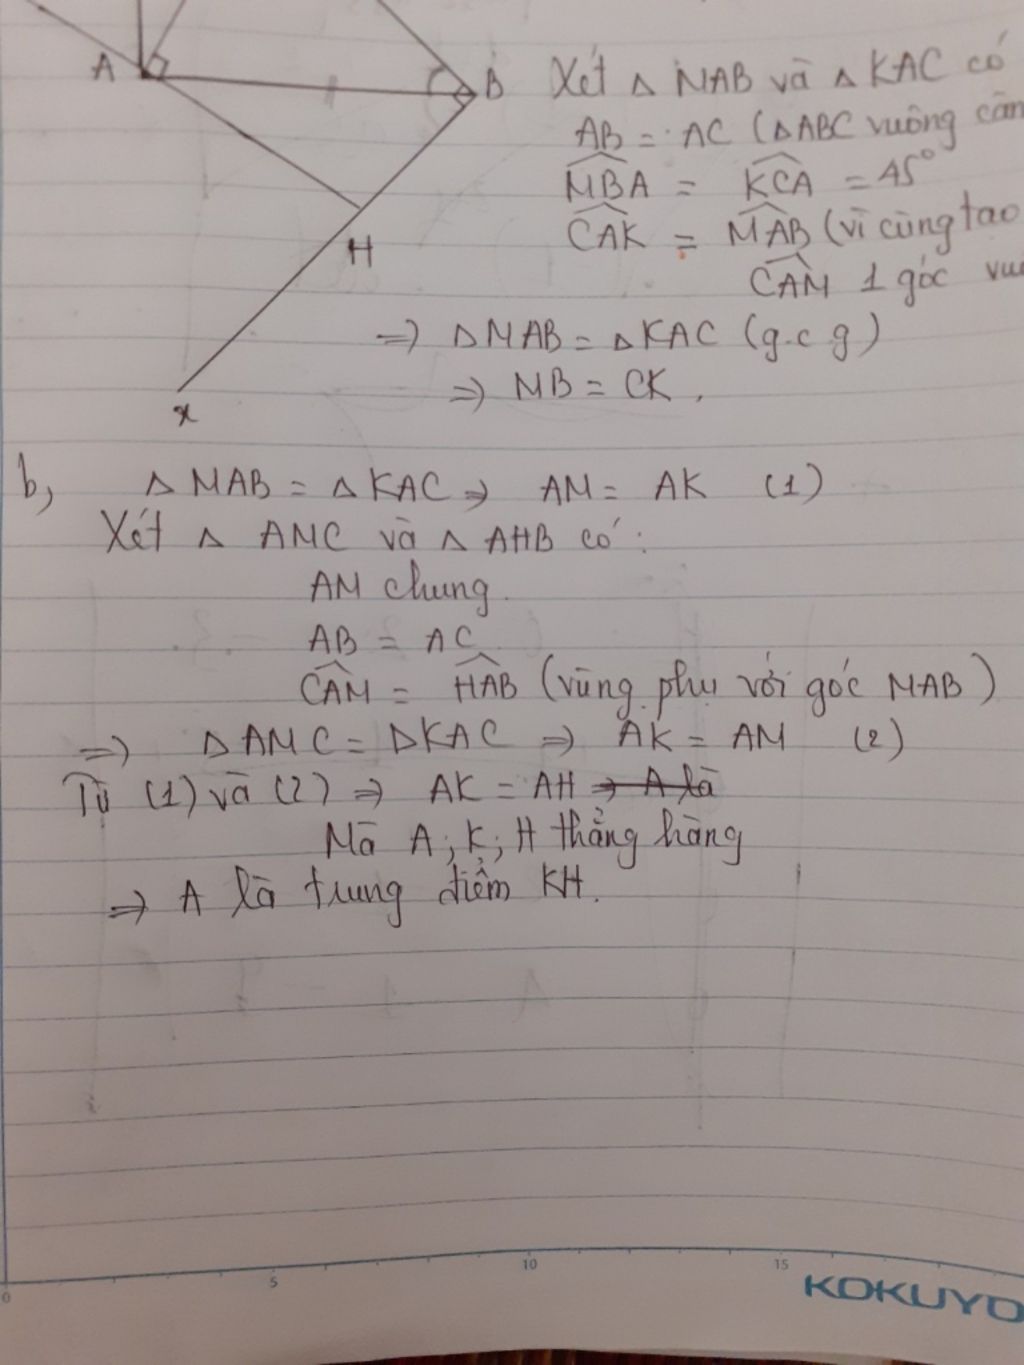 A
B
H
x
Xét △ MAB và △ KAC có
AB = AC (△ABC vuông cân
MBA = KCA = 45°
CAK = MAB (vì cùng tao
CAM 1 góc
=> △MAB = △KAC (g.c g)
=> MB = CK.
b, △ MAB = △ KAC => AM = AK (1)
Xét △ AMC và △ AHB có:
AM chung.
AB = AC
CAM = HAB (vùng phụ với góc MAB)
=> △AMC = △KAC => AK = AM (2)
Từ (1) và (2) => AK = AH => A là
Mà A; K; H thẳng hàng
=> A là trung điểm KH.
0 5 10 15
KOKUYO